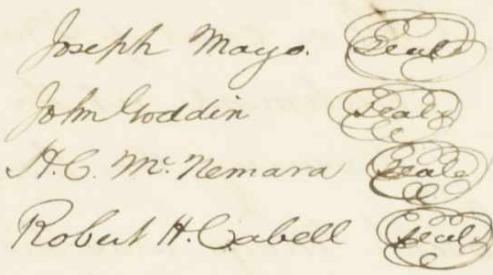 Joseph Mayo. Seal
John Goddin Seal
H. C. Mc. Nemara Seal
Robert H. Cabell Seal